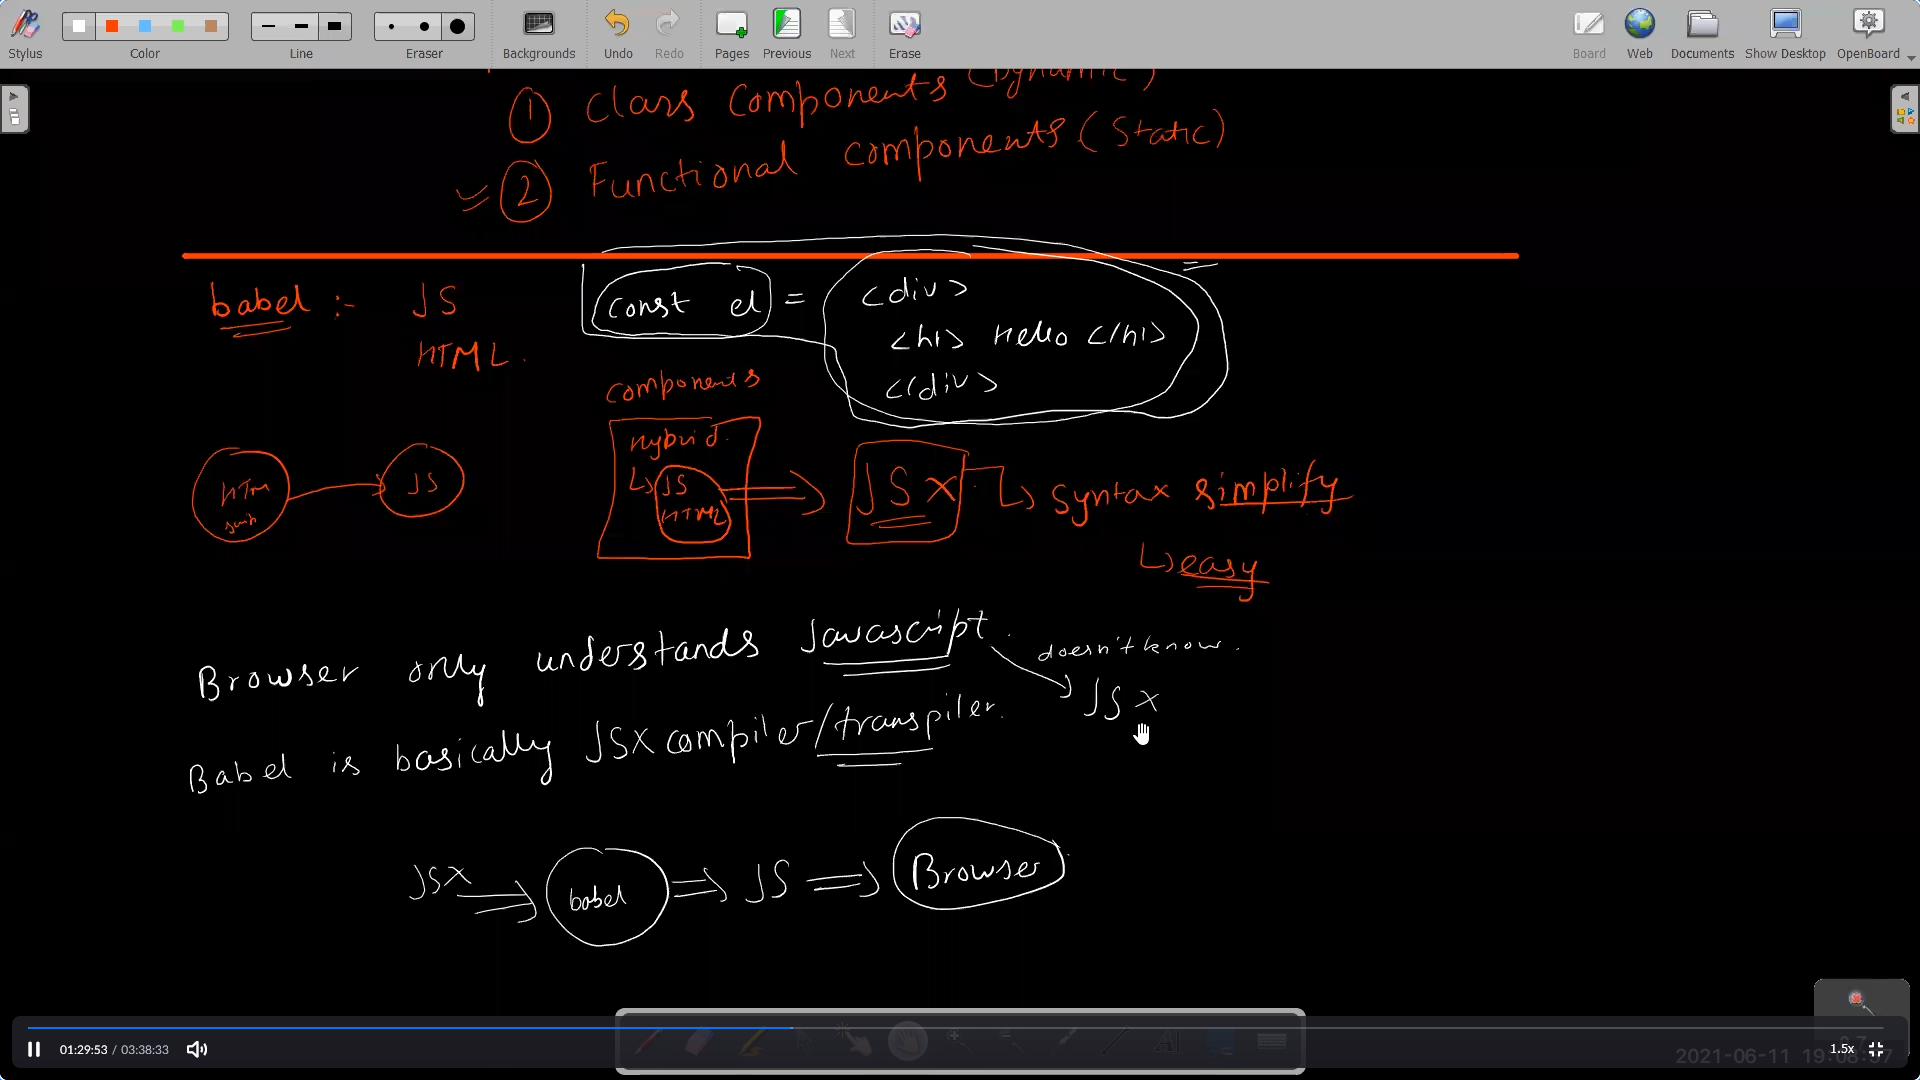 Stylus
Color
Line
Eraser
Backgrounds
Undo
Redo
Pages
Previous
Next
Erase
Board
Web
Documents
Show Desktop
OpenBoard
1 Class Components (Dynamic)
2 Functional components (Static)
babel :- JS
HTML.
const el = <div>
<h1> Hello </h1>
</div>
components
Hybrid.
JS
HTML
JSX
syntax simplify
easy
HTM
JS
Browser only understands Javascript.
doesn't know.
JSX
Babel is basically JSX compiler/transpiler.
JSX babel JS Browser
01:29:53 / 03:38:33
1.5x
2021-06-11